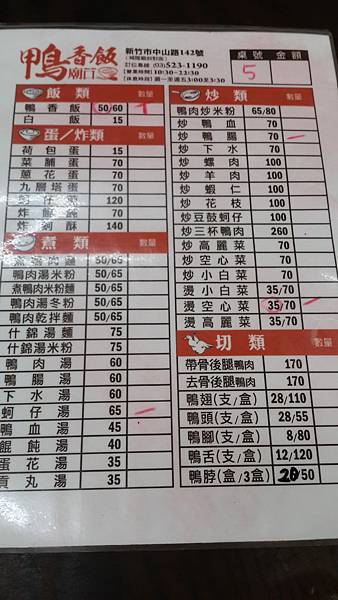 鴨香飯
廟口
新竹市中山路142號
訂位專線 03)523-1190
【營業時間】10:30~22:30
桌號 金額
5
飯類 數量
鴨香飯 50/60
白飯 15
蛋/炸類 數量
荷包蛋 15
菜脯蛋 70
蔥花蛋 70
九層塔蛋 70
120
70
140
煮類 數量
50/65
鴨肉湯米粉 50/65
煮鴨肉米粉麵 50/65
鴨肉湯冬粉 50/65
鴨肉乾拌麵 50/65
什錦湯麵 75
什錦湯米粉 75
鴨肉湯 60
鴨腸湯 60
下水湯 60
蚵仔湯 65
鴨血湯 45
餛飩湯 40
蛋花湯 35
貢丸湯 35
炒類 數量
鴨肉炒米粉 65/80
炒鴨血 70
炒鴨腸 70
炒下水 70
炒螺肉 100
炒羊肉 100
炒蝦仁 100
炒花枝 100
炒豆鼓蚵仔 100
炒三杯鴨肉 260
炒高麗菜 70
炒空心菜 70
炒小白菜 70
燙小白菜 35/70
燙空心菜 35/70
燙高麗菜 35/70
切類 數量
帶骨後腿鴨肉 170
去骨後腿鴨肉 170
鴨翅(支/盒) 28/110
鴨頭(支/盒) 28/55
鴨腳(支/盒) 8/80
鴨舌(支/盒) 12/120
鴨脖(盒/3盒) 20/50